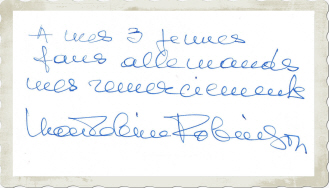 A mes 3 jeunes
fans allemands
mes remerciements
Madeleine Robinson